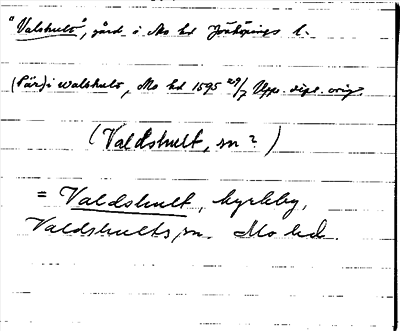 "Valshult", gård i Mo hd Jönköpings l.
(Pär) i walshult, Mo hd 1595 29/7 Upps. dipl. orig.
(Valdshult, sn ?)
= Valdshult, kyrkby,
Valdshults sn. Mo hd.